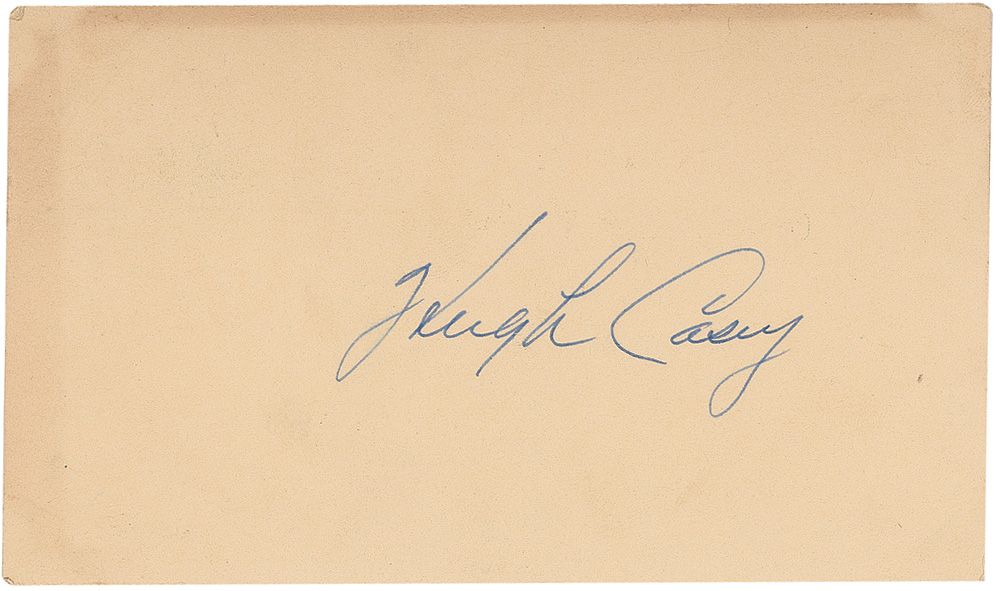 Hugh Casey